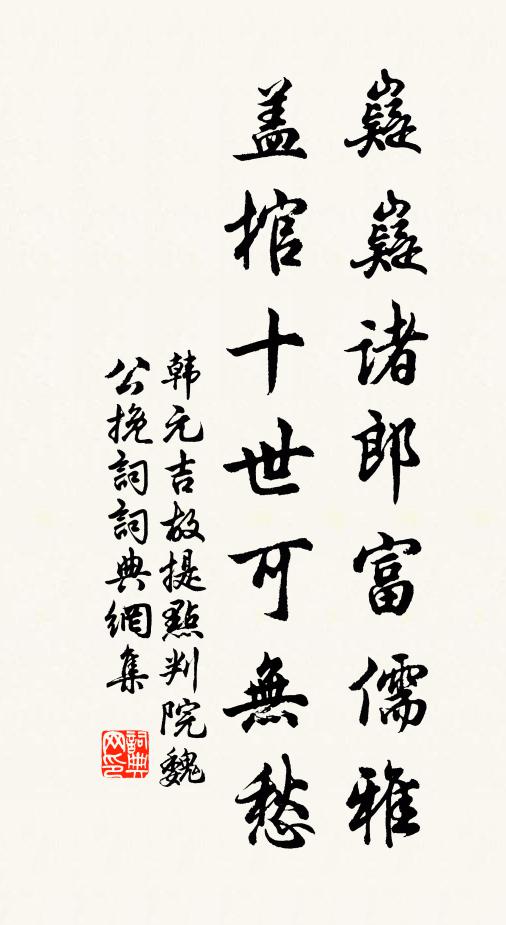 嶷嶷諸郎富儒雅
盖棺十世可無愁
韩元吉故提點判院魏
公挽詞詞典網集
詞典網印